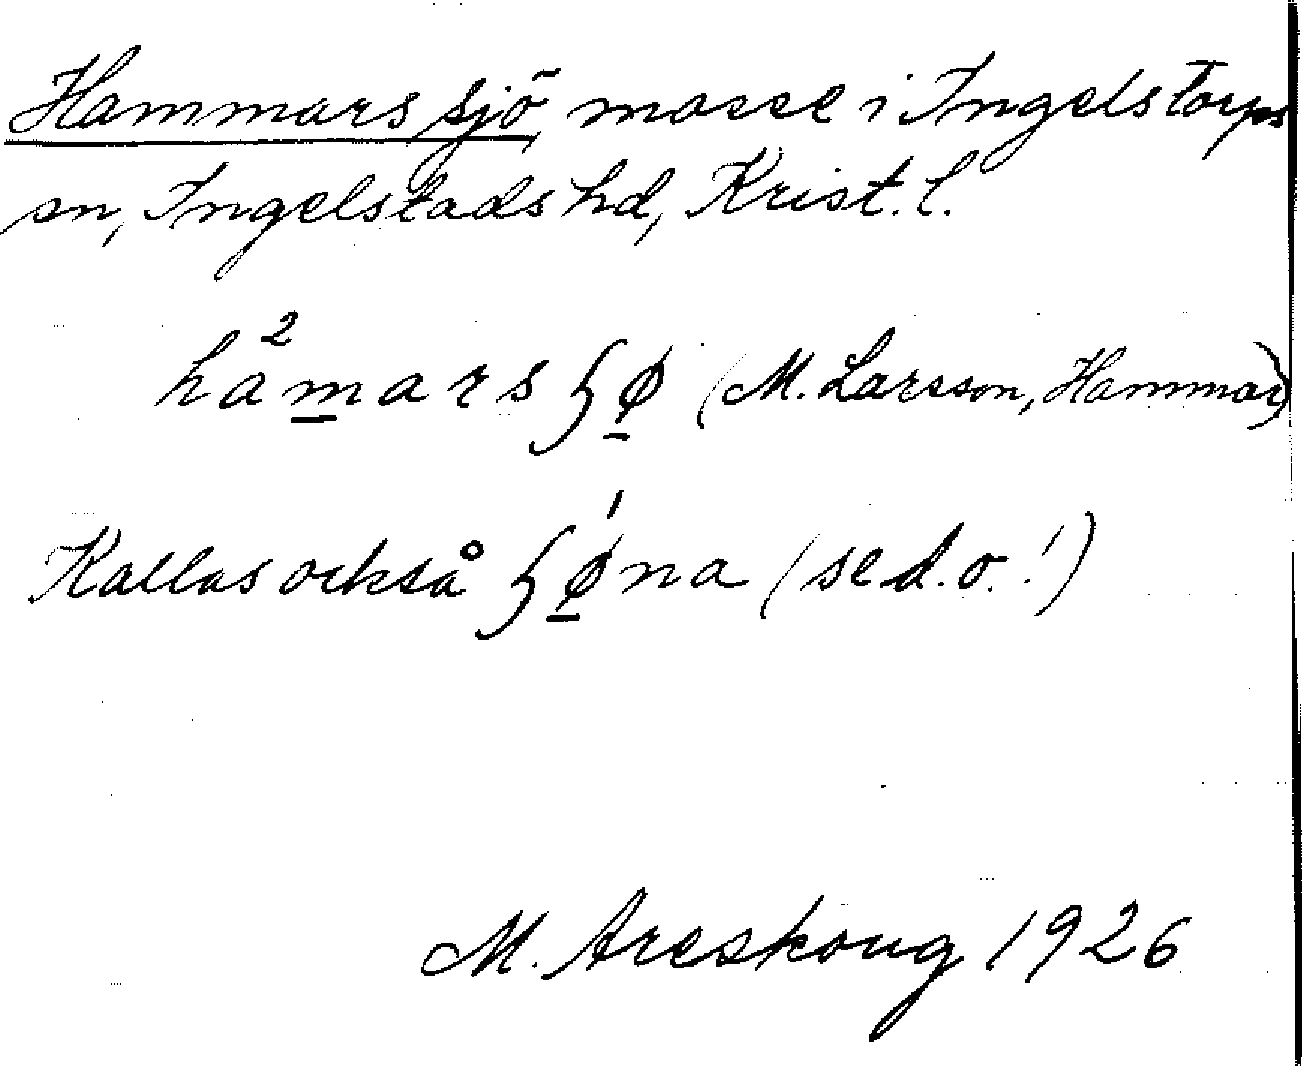 Hammars sjö, mosse i Ingelstorps
sn, Ingelstads hd, Krist. l.
ha²m̲arsɧø̲ (M. Larsson, Hammar)
Kallas också ɧǿ̲na (se d.o.!)
M. Areskoug 1926